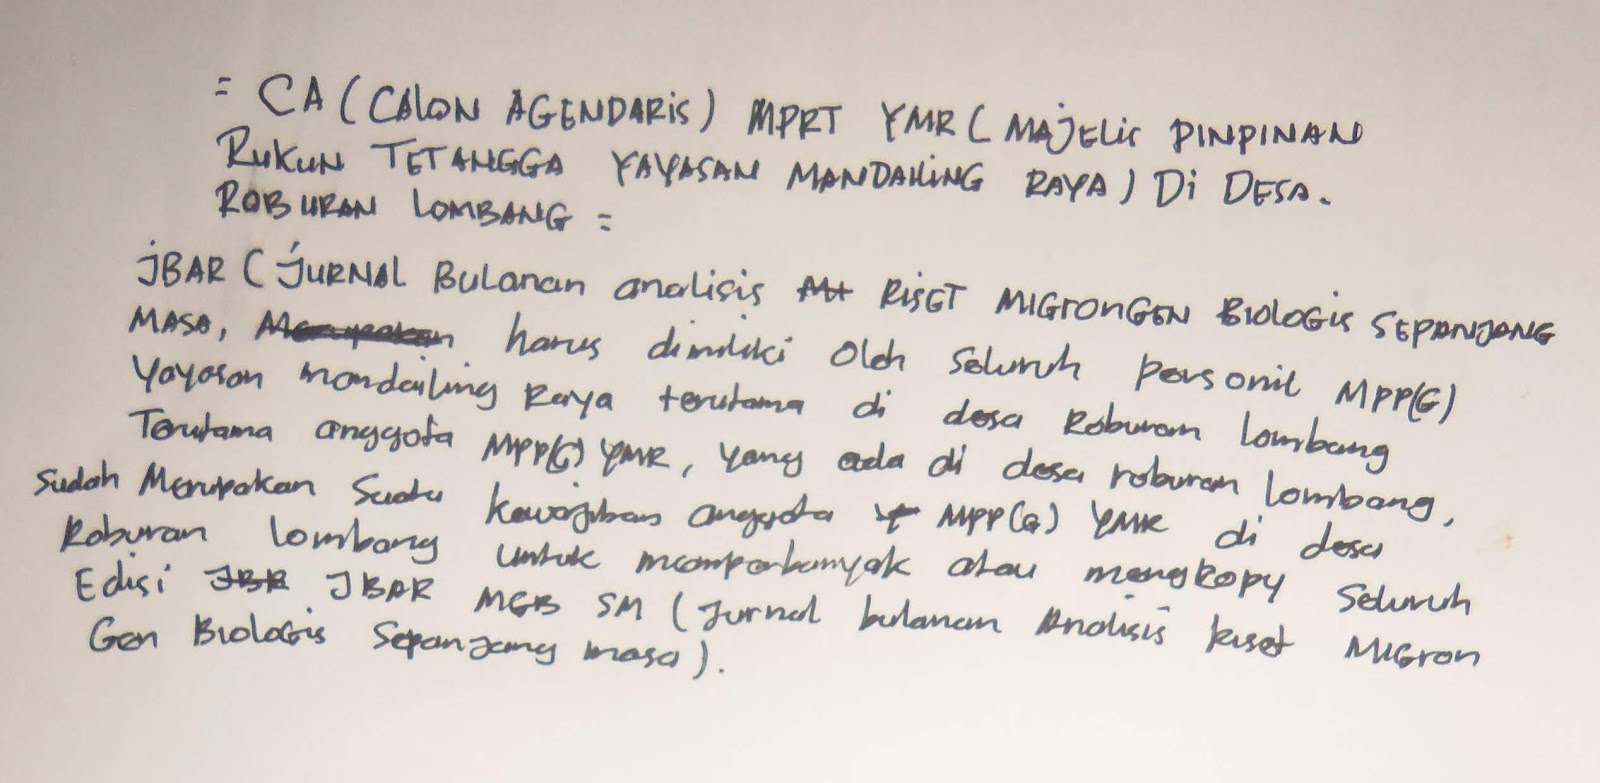 = CA (CALON AGENDARIS) MPRT YMR (MAJELIS PINPINAN
RUKUN TETANGGA YAYASAN MANDAILING RAYA) Di DESA.
ROBURAN LOMBANG =
JBAR (JURNAL Bulanan analisis RISET MIGRONGEN BIOLOGIS SEPANJANG
MASA, harus dimiliki Oleh Seluruh personil MPP(G)
Yayasan mandailing Raya terutama di desa Roburan lombang
Terutama anggota MPP(G) YMR, yang ada di desa roburan lombang,
Sudah Merupakan Suatu kewajiban anggota MPP(G) YMR di desa
Roburan lombang untuk memperbanyak atau mengkopy Seluruh
Edisi JBAR MGB SM (Jurnal bulanan Analisis Riset MIGron
Gen Biologis Sepanjang masa).